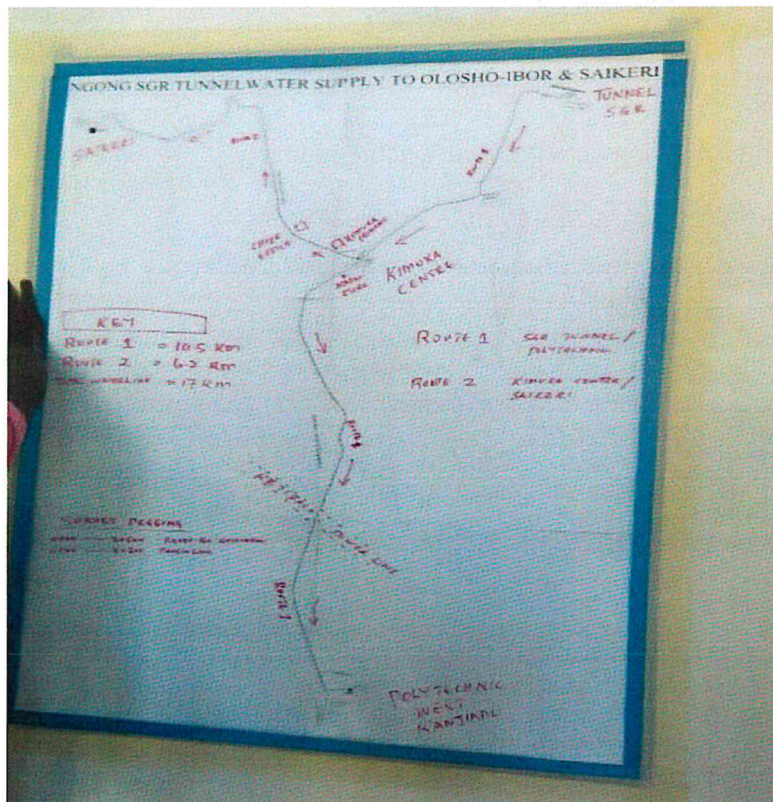 NGONG SGR TUNNEL WATER SUPPLY TO OLOSHO-IBOR & SAIKERI
TUNNEL
SGR
SAIKERI
Route 2
Route 1
CHIEF
OFFICE
KIMUKA
KIMUKA
CENTRE
KEY
ROUTE 1 = 10.5 KM
ROUTE 2 = 6.5 KM
= 17 KM
ROUTE 1 SGR TUNNEL/
POLYTECHNIC
ROUTE 2 KIMUKA CENTER/
SAIKERI
Route 1
POWER LINE
SURVEY PEGGING
Route 1
POLYTECHNIC
WEST